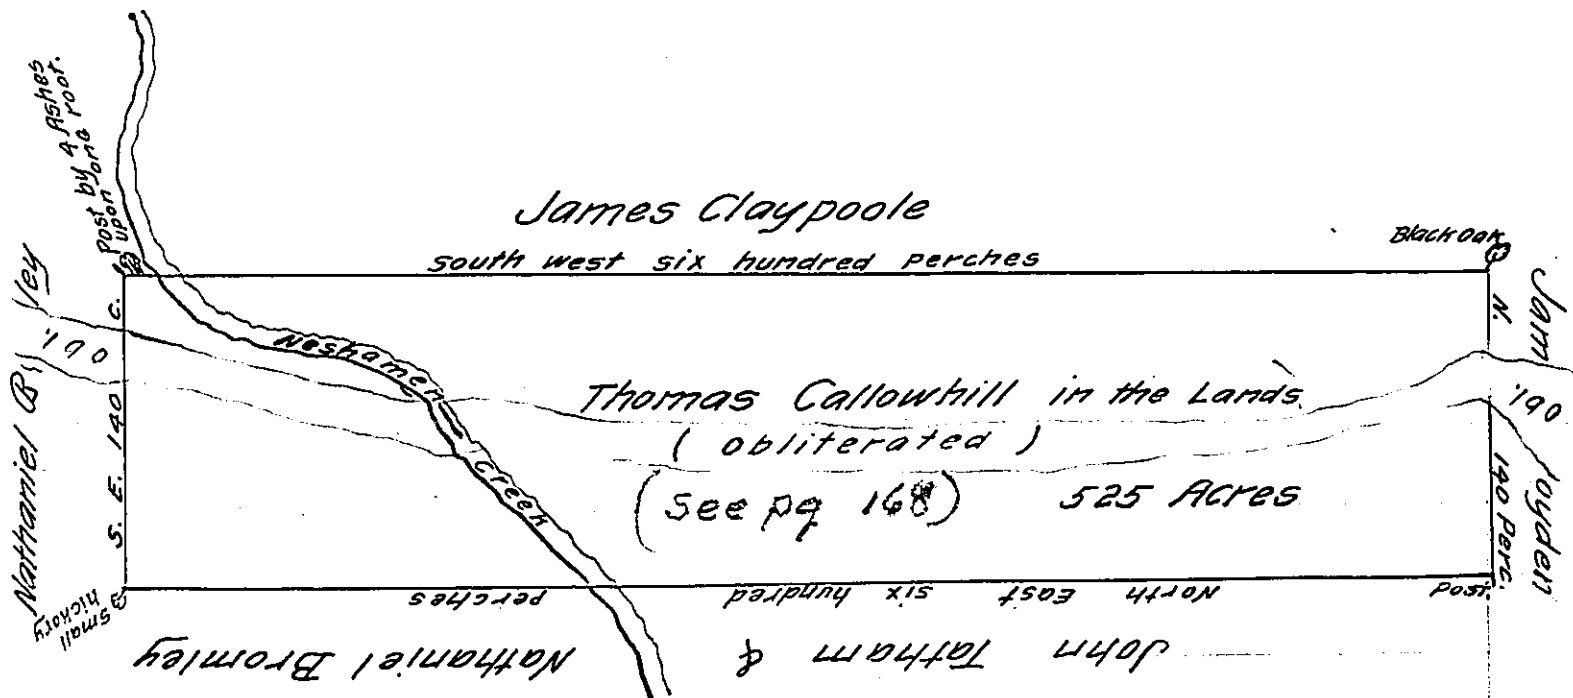 Post by 4 Ashes
upon one root.
James Claypoole
Black Oak
South West six hundred perches
Nathaniel B
ley
190
S. E. 140 C.
Neshamen
Creek
Thomas Callowhill in the Lands
( obliterated )
(See pg 168) 525 Acres
N.
140 Perc.
Jam
oyden
190
Small
hickory
North East six hundred perches
Post.
John Tatham & Nathaniel Bromley